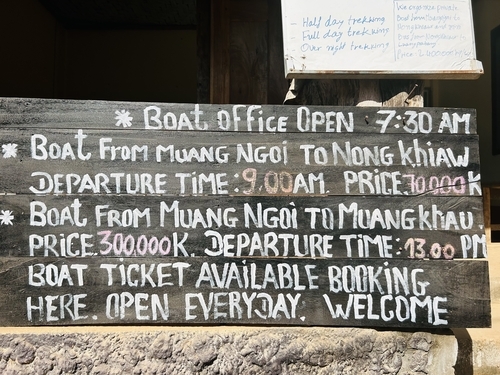 - Half day trekking
- Full day trekking
- Over night trekking
* BOAT OFFICE OPEN 7:30 AM
* BOAT FROM MUANG NGOI TO NONG KHIAW
DEPARTURE TIME:9.00AM. PRICE.70.000K
* BOAT FROM MUANG NGOI TO MUANG KHAU.
PRICE.300.000K. DEPARTURE TIME:13.00 PM
BOAT TICKET AVAILABLE BOOKING
HERE. OPEN EVERYDAY. WELCOME